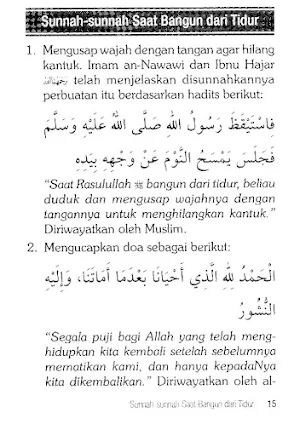 Sunnah-sunnah Saat Bangun dari Tidur
1. Mengusap wajah dengan tangan agar hilang
kantuk. Imam an-Nawawi dan Ibnu Hajar
telah menjelaskan disunnahkannya
perbuatan itu berdasarkan hadits berikut:
فَاسْتَيْقَظَ رَسُولُ اللهِ صَلَّى اللهُ عَلَيْهِ وَسَلَّمَ
فَجَلَسَ يَمْسَحُ النَّوْمَ عَنْ وَجْهِهِ بِيَدِهِ
“Saat Rasulullah ﷺ bangun dari tidur, beliau
duduk dan mengusap wajahnya dengan
tangannya untuk menghilangkan kantuk.”
Diriwayatkan oleh Muslim.
2. Mengucapkan doa sebagai berikut:
الْحَمْدُ لِلهِ الَّذِي أَحْيَانَا بَعْدَمَا أَمَاتَنَا، وَإِلَيْهِ
النُّشُورُ
“Segala puji bagi Allah yang telah meng-
hidupkan kita kembali setelah sebelumnya
mematikan kami, dan hanya kepadaNya
kita dikembalikan.” Diriwayatkan oleh al-
Sunnah-sunnah Saat Bangun dari Tidur 15